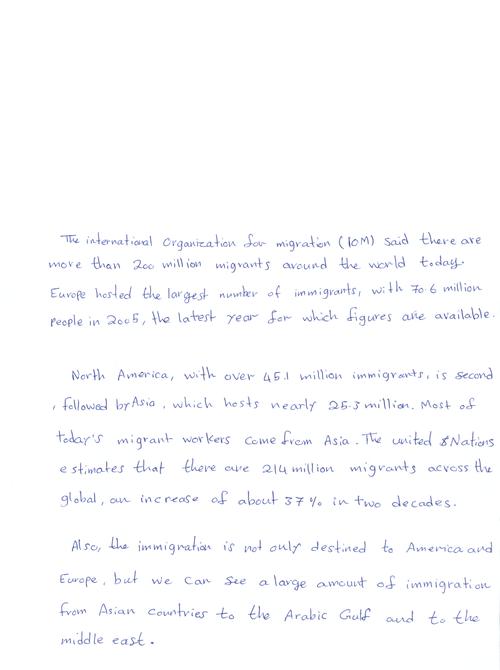 The international Organization for migration (IOM) said there are
more than 200 million migrants around the world today.
Europe hosted the largest number of immigrants, with 70.6 million
People in 2005, the latest year for which figures are available.
North America, with over 45.1 million immigrants, is second
, followed by Asia, which hosts nearly 25.3 million. Most of
today's migrant workers come from Asia. The united Nations
estimates that there are 214 million migrants across the
global, an increase of about 37% in two decades.
Also, the immigration is not only destined to America and
Europe, but we can see a large amount of immigration
from Asian countries to the Arabic Gulf and to the
middle east.